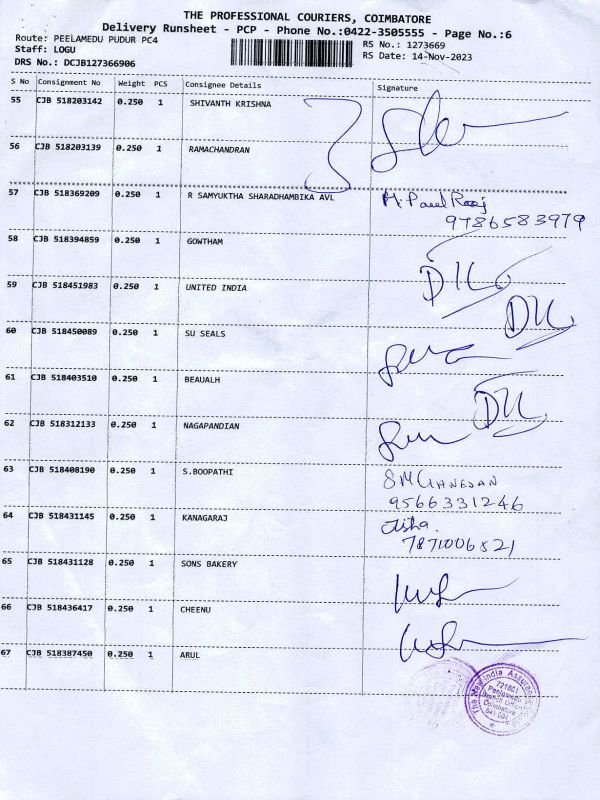 THE PROFESSIONAL COURIERS, COIMBATORE
Delivery Runsheet - PCP - Phone No.:0422-3505555 - Page No.:6
Route: PEELAMEDU PUDUR PC4
RS No.: 1273669
Staff: LOGU
RS Date: 14-Nov-2023
DRS No.: DCJB127366906
S No Consignment No Weight PCS Consignee Details Signature
55 CJB 518203142 0.250 1 SHIVANTH KRISHNA
56 CJB 518203139 0.250 1 RAMACHANDRAN
57 CJB 518369209 0.250 1 R SAMYUKTHA SHARADHAMBIKA AVL
9786583979
58 CJB 518394859 0.250 1 GOWTHAM
59 CJB 518451983 0.250 1 UNITED INDIA
60 CJB 518450089 0.250 1 SU SEALS
61 CJB 518403510 0.250 1 BEAUALH
62 CJB 518312133 0.250 1 NAGAPANDIAN
63 CJB 518408190 0.250 1 S.BOOPATHI SM GANESAN
9566331246
64 CJB 518431145 0.250 1 KANAGARAJ Asha
7871006521
65 CJB 518431128 0.250 1 SONS BAKERY
66 CJB 518436417 0.250 1 CHEENU
67 CJB 518387450 0.250 1 ARUL
The New India Assurance
721601